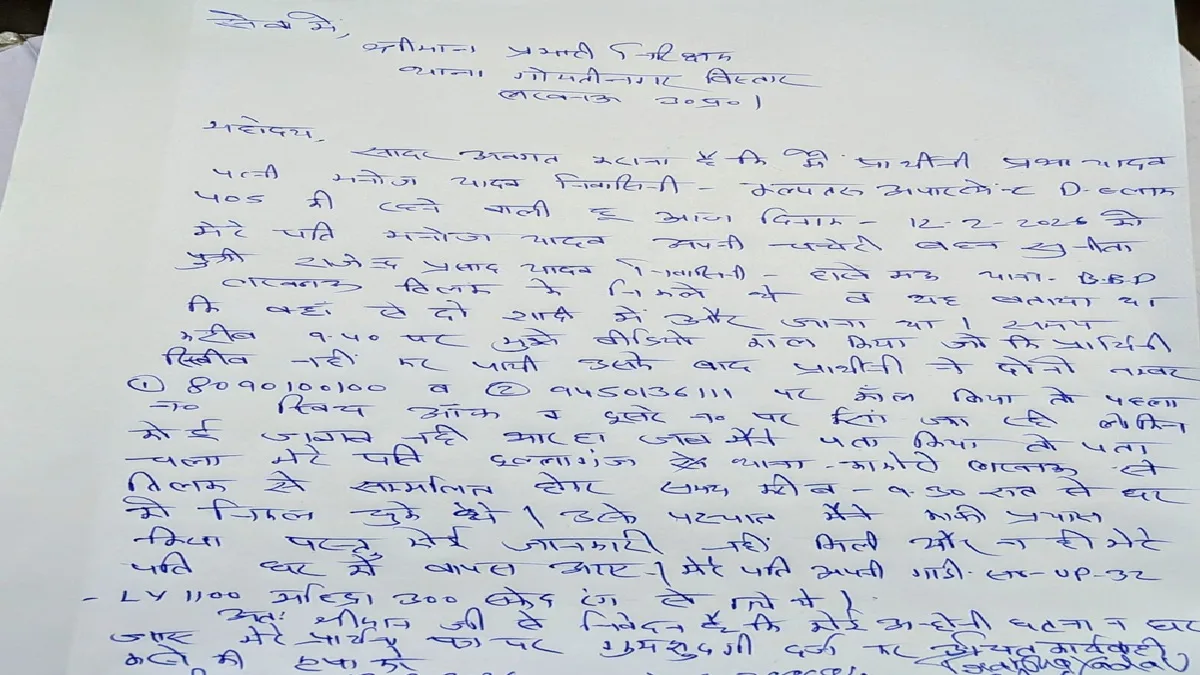 सेवा में,
श्रीमान प्रभारी निरिक्षक
थाना गोमतीनगर विस्तार
लखनऊ उ०प्र०।
महोदय,
सादर अवगत कराना है कि मैं प्रार्थीनी प्रभा यादव
पत्नी मनोज यादव निवासिनी - कल्पतरू अपार्टमेन्ट D-ब्लाक
405 की रहने वाली हूँ आज दिनाक - 12-2-2026 को
मेरे पति मनोज यादव अपनी चचेरी बहन सुनीता
पुत्री राजेन्द्र प्रसाद यादव निवासिनी - हाल मऊ थाना - B.B.D
लखनऊ तिलक के निकले थे व यह बताया था
कि वहाँ से दो शादी में और जाना था। समय
करीब 9.40 पर मुझे वीडियो कॉल किया जो कि प्रार्थिनी
रिसीव नहीं कर पायी उसके बाद प्रार्थीनी ने दोनों नम्बर
① 8090100100 व ② 9450136111 पर कॉल किया तो पहला
न० स्विच ऑफ व दूसरे न० पर रिंग जा रही लेकिन
कोई जवाब नहीं आ रहा जब मैंने पता किया तो पता
चला मेरे पति थाना - काकोरी लखनऊ से
तिलक से सम्मलित होकर समय करीब - 9.30 रात से घर
को निकल चुके थे। उसके पश्चात मैंने काफी प्रयास
किया परन्तु कोई जानकारी नहीं मिली और न ही मेरे
पति घर में वापस आए। मेरे पति अपनी गाडी सं०- UP-32
- LV 1100 महिंद्रा 300 सफेद रंग से गये थे।
अतः श्रीमान जी से निवेदन है कि कोई अनहोनी घटना न घट
जाए मेरे प्रार्थना पत्र पर गुमशुदगी दर्ज कर उचित कार्यवाही
करने की कृपा करें